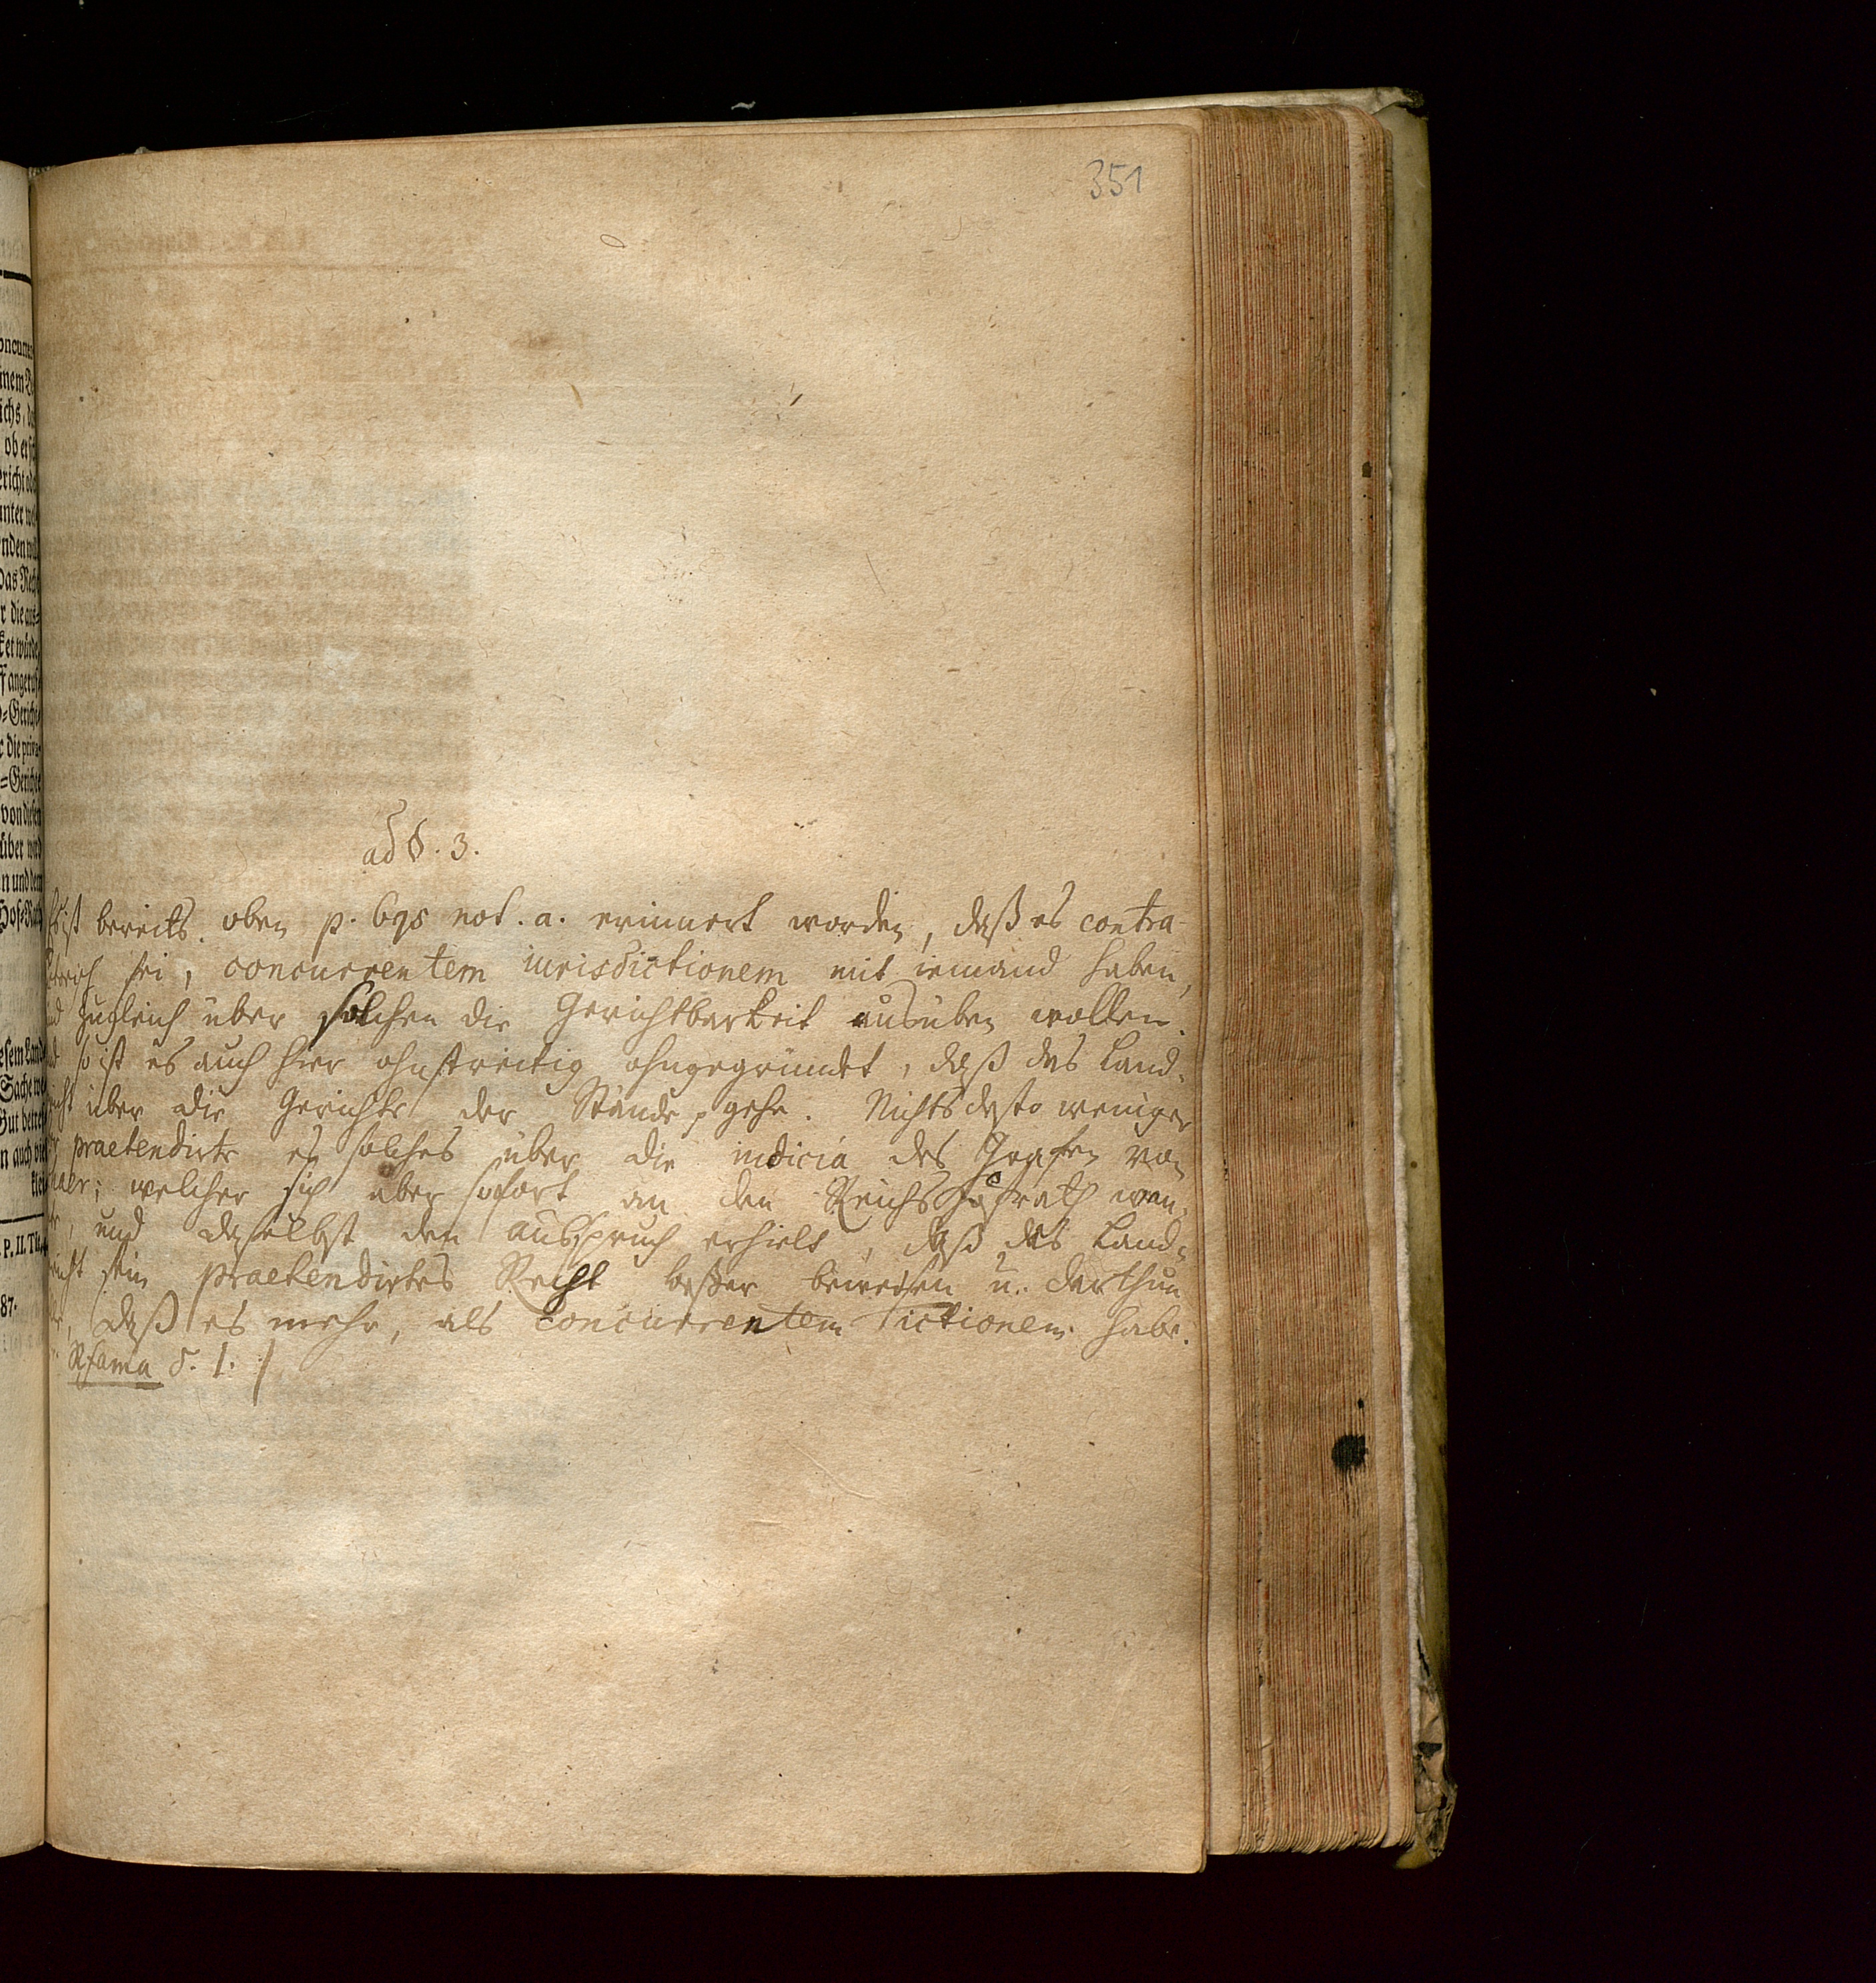 351
ad §. 3.
ist bereits oben p. 698 not. a. erinnert worden, daß es contra-
sei, concurrentem iurisdictionem mit iemand haben,
zugleich über solchen die Gerichtbarkeit ausüben wollen.
so ist es auch hier ohnstreitig ohngegründet, daß das Land-
über die Gerichte der Stände gehe. Nichts desto weniger
praetendirte es solches über die iudicia des Grafen von
welcher sich aber sofort an den Reichshofrath wen-
und daselbst den Ausspruch erhielt, daß das Land-
sein praetendirtes Recht beßer beweisen u. darthun
daß es mehr, als concurrentem ictionem habe.
Rfama 1.
oncurren
inem
ichs, da
ob er
ericht oder
unter
nden
das
r die
ket würde
angeruf
=Gericht
die priv
=Gerichte
von diesen
über wird
n und dem
Hof=Rath
esem Land
Sache
Gut betref
n auch
P. II. Tit.
87.